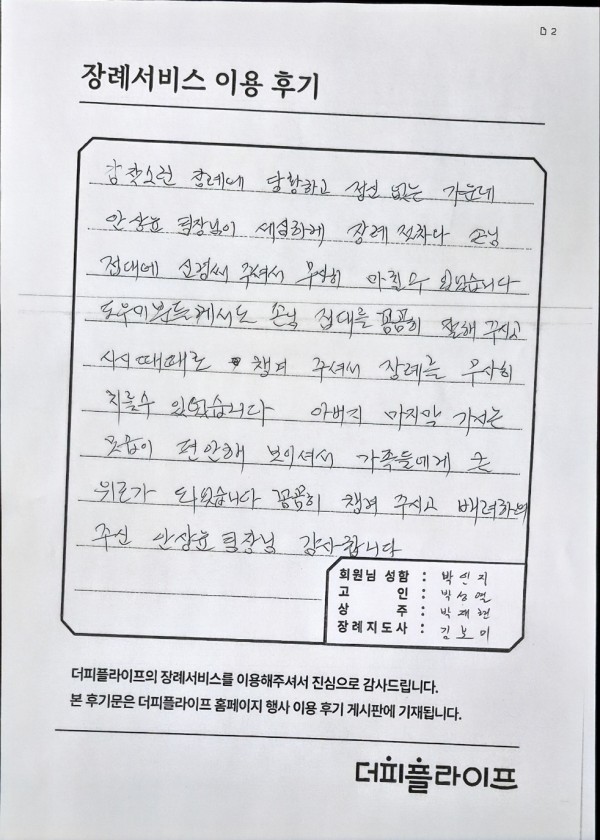 D 2
장례서비스 이용 후기
갑작스런 장례에 당황하고 정신 없는 가운데
안상효 팀장님이 세심하게 장례 절차나 손님
접대에 신경써 주셔서 무사히 마칠수 있었습니다
도우미분들께서도 손님 접대를 꼼꼼히 잘해 주시고
시시때때로 챙겨 주셔서 장례를 무사히
치를수 있었습니다 아버지 마지막 가시는
모습이 편안해 보이셔서 가족들에게 큰
위로가 되었습니다 꼼꼼히 챙겨 주시고 배려하여
주신 안상효 팀장님 감사합니다
회원님 성함 : 박인지
고 인 : 박성열
상 주 : 박재현
장례지도사 : 김보미
더피플라이프의 장례서비스를 이용해주셔서 진심으로 감사드립니다.
본 후기문은 더피플라이프 홈페이지 행사 이용 후기 게시판에 기재됩니다.
더피플라이프